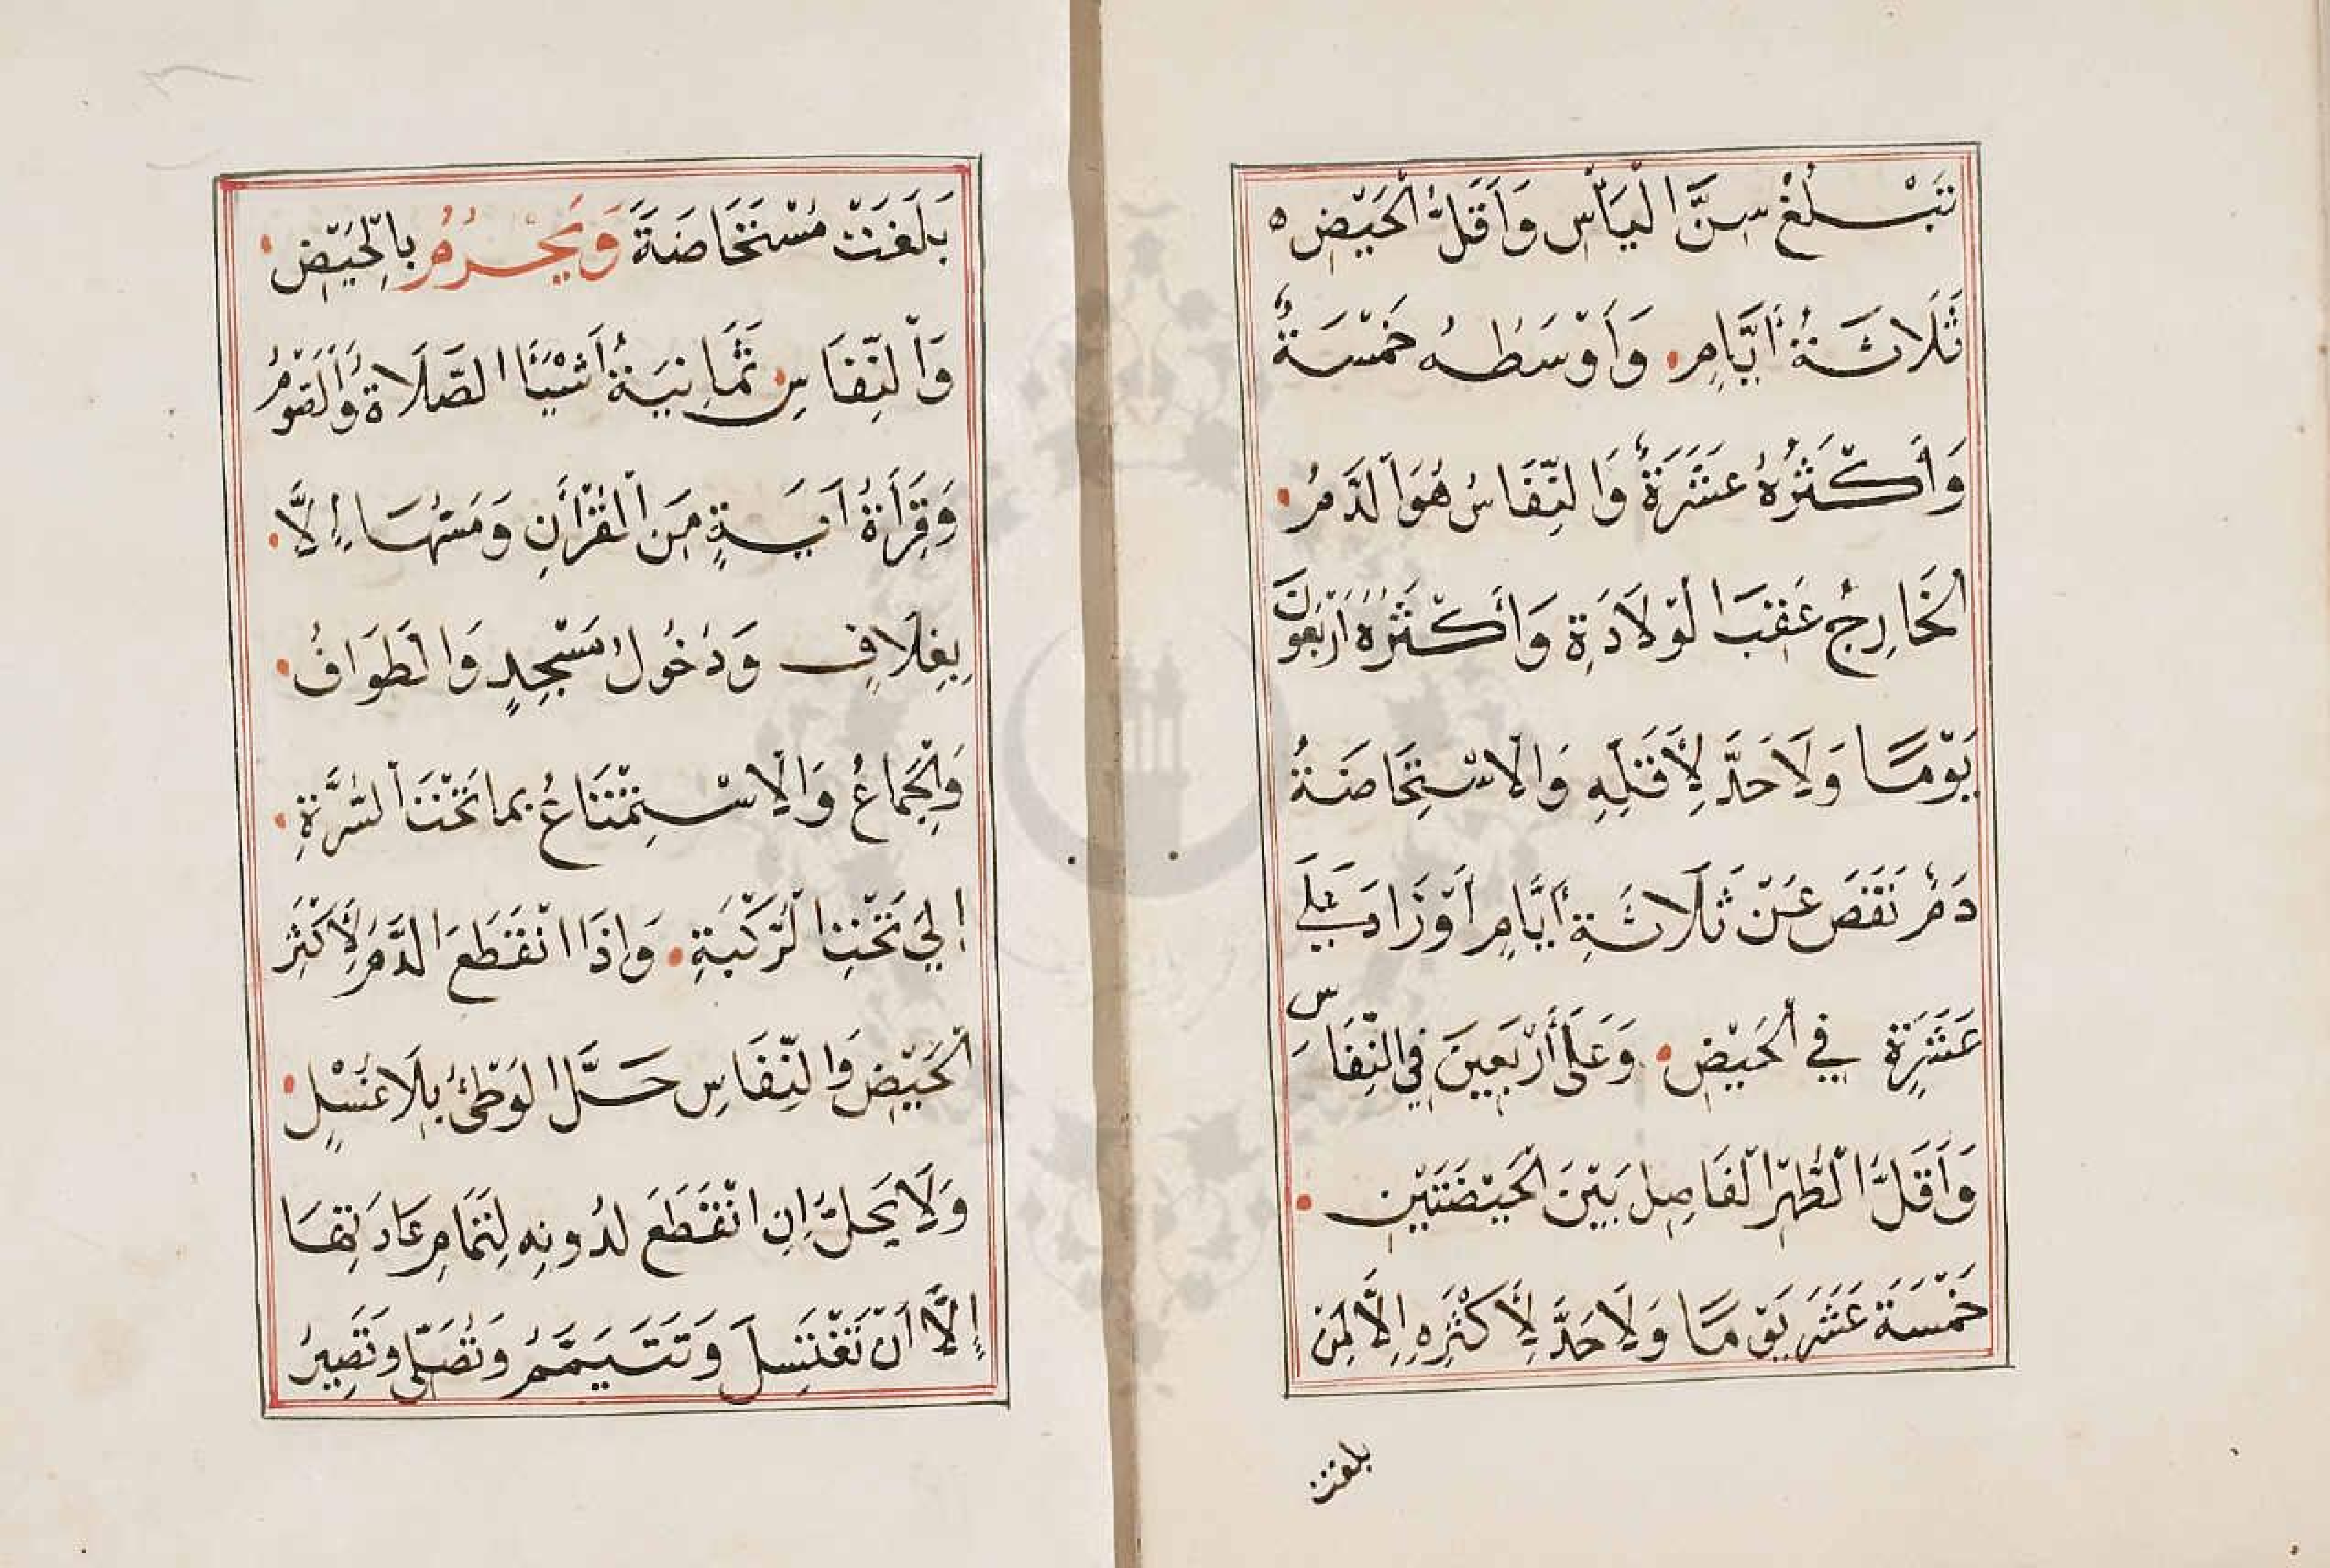 تَبْلُغْ سِنَّ الْيَأْسِ وَأَقَلُّ الْحَيْضِ ه
ثَلَاثَةُ أَيَّامٍ وَأَوْسَطُهُ خَمْسَةٌ
وَأَكْثَرُهُ عَشَرَةٌ وَالنِّفَاسُ هُوَ الدَّمُ
الْخَارِجُ عَقِبَ الْوِلَادَةِ وَأَكْثَرُهُ أَرْبَعُونَ
يَوْمًا وَلَا حَدَّ لِأَقَلِّهِ وَالْاسْتِحَاضَةُ
دَمٌ نَقَصَ عَنْ ثَلَاثَةِ أَيَّامٍ أَوْ زَادَ عَلَى
عَشَرَةٍ فِي الْحَيْضِ وَعَلَى أَرْبَعِينَ فِي النِّفَاسِ
وَأَقَلُّ الْطُّهْرِ الْفَاصِلِ بَيْنَ الْحَيْضَتَيْنِ
خَمْسَةَ عَشَرَ يَوْمًا وَلَا حَدَّ لِأَكْثَرِهِ إِلَّا لِمَنْ
بلغت
بَلَغَتْ مُسْتَحَاضَةً وَيَحْرُمُ بِالْحَيْضِ
وَالنِّفَاسِ ثَمَانِيَةُ أَشْيَا الصَّلَاةُ وَالصَّوْمُ
وَقِرَأَةُ أَيَةٍ مِنَ الْقُرْأَنِ وَمَسُّهَا إِلَّا
بِغِلَافٍ وَدُخُولُ مَسْجِدٍ وَالْطَوَافُ
وَالْجِمَاعُ وَالْاسْتِمْتَاعُ بِمَا تَحْتَ الْسُّرَّةِ
إِلَى تَحْتِ الْرُّكْبَةِ وَإِذَا انْقَطَعَ الدَّمُ لِأَكْثَرِ
الْحَيْضِ وَالنِّفَاسِ حَلَّ الْوَطْئُ بِلَا غُسْلٍ
وَلَا يَحِلُّ إِنِ انْقَطَعَ لِدُونِهِ لِتَمَامِ عَادَتِهَا
إِلَّا أَنْ تَغْتَسِلَ وَتَتَيَمَّمُ وَتُصَلِّي وَتَصِيرُ